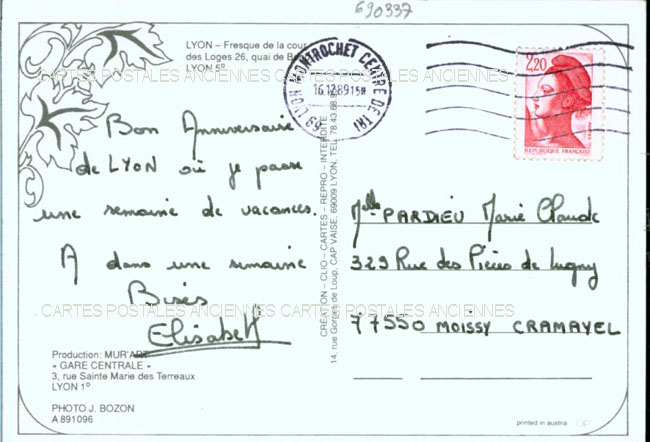 690337
LYON – Fresque de la cour
des Loges 26, quai de B
LYON 5°
CARTES POSTALES ANCIENNES CARTES POSTALES ANCIENNES
69 LYON MONTROCHET CENTRE DE TRI
16.12.89 15H
2,20
REPUBLIQUE FRANÇAISE
Bon Anniversaire
de LYON où je passe
une semaine de vacances.
A dans une semaine
Bises
Elisabeth
CRÉATION – CLIO – CARTES – REPRO – INTERDITE
14, rue Gorges de Loup, CAP VAISE, 69009 LYON, TEL. 78.43.68
Melle PARDIEU Marie Claude
329 Rue des
de Lugny
77550 MOISSY CRAMAYEL
CARTES POSTALES ANCIENNES CARTES POSTALES ANCIENNES
Production: MUR'ART
« GARE CENTRALE »
3, rue Sainte Marie des Terreaux
LYON 1°
PHOTO J. BOZON
A 891096
printed in austria